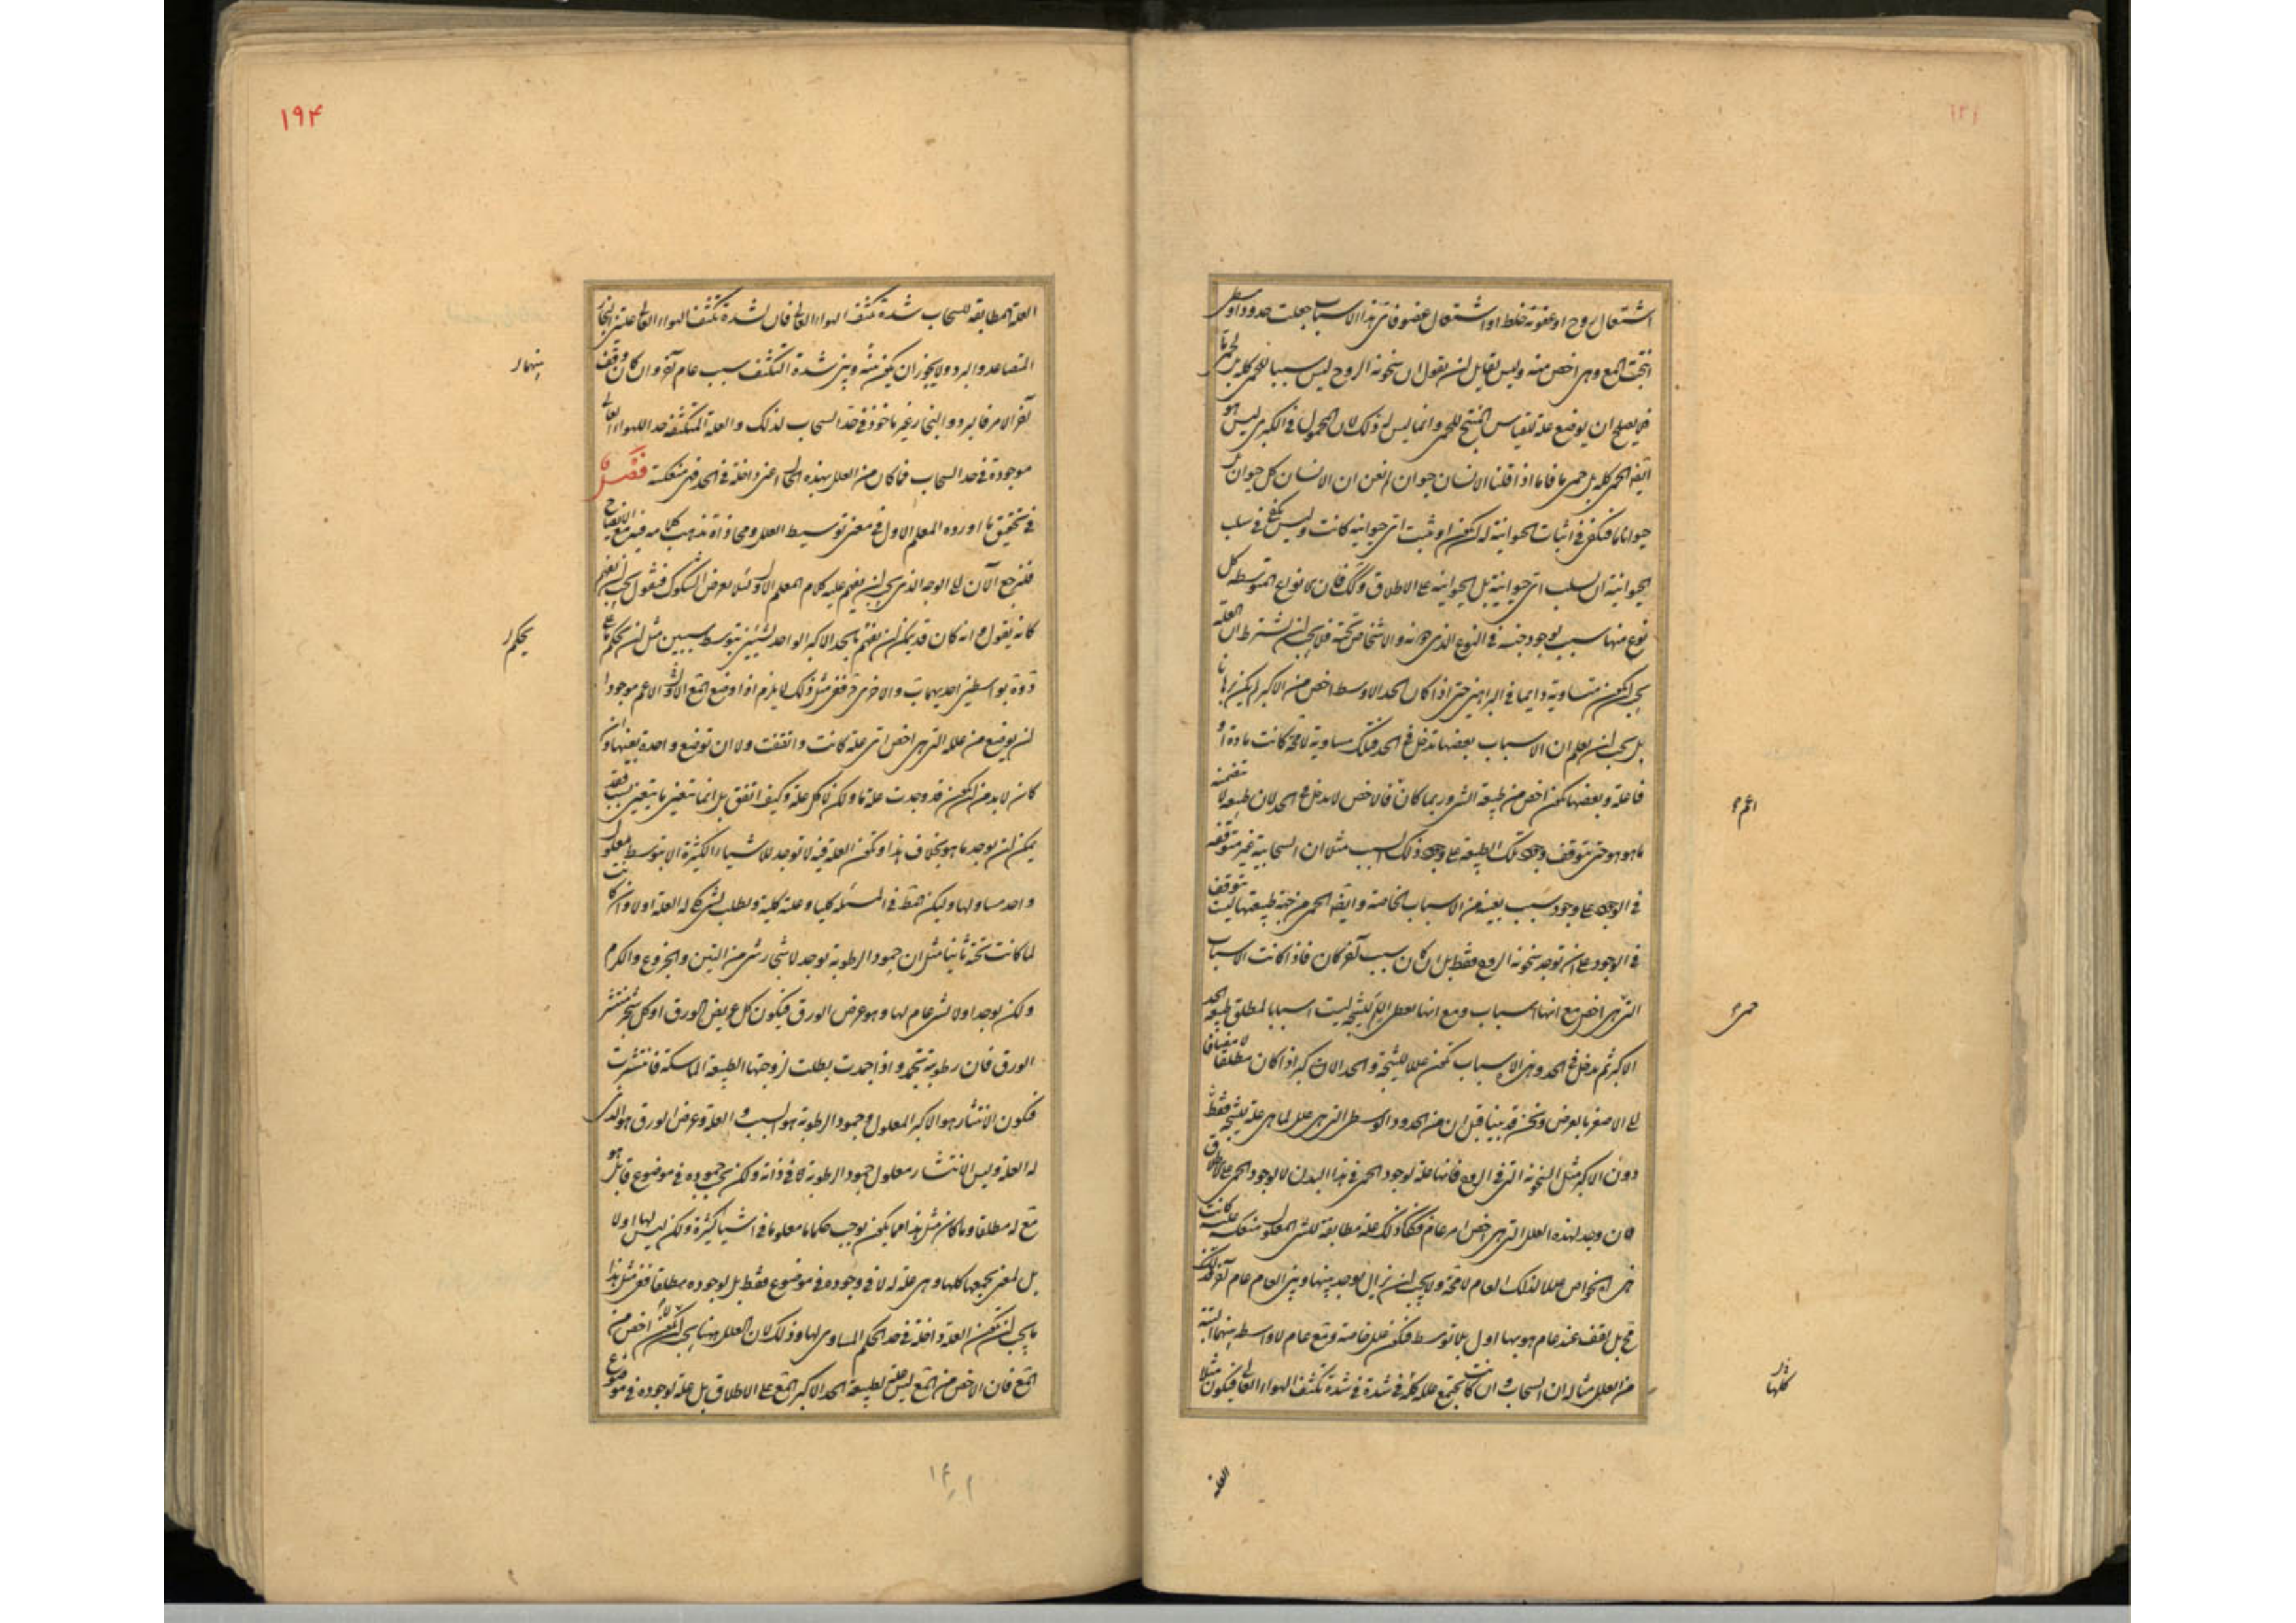 اشتعال روح او عفونة خلط او اشتعال عضو فاى هذا الاسباب جعلت حدود اوسطى
انتجت المع وهى اخص منه وليس لقايل ان يقول ان سخونة الروح ليس سببا للحمى كله بل لحمى ما
فما يصلح ان يوضع علة للقياس المنتج للحمى وانما ليس له ذلك لان المحمول فى الكبرى ليس هو
انه الحمى كله بل حمى ما فاما اذا قلنا الانسان حيوان لم نعن ان الانسان كل حيوان بل
حيوانا ما فيكفى فى اثبات الحيوانية له ان يكون او ثبت اى حيوانية كانت وليس يكفى فى سلب
الحيوانية ان يسلب اى حيوانية بل الحيوانية على الاطلاق وكك فان الانواع المتوسطة كل
نوع منها سبب لوجود جنسه فى النوع الذى دونه والاشخاص تحته فلا يجب ان يشترط ان العلة
يجب ان يكون متساوية دايما فى البراهين حتى اذا كان الحد الاوسط اخص من الاكبر لم يكن برهانا
بل يجب ان يعلم ان الاسباب بعضها تدخل فى الحد فتلك مساوية لا محة كانت مادة او
فاعلة وبعضها يكون اخص من طبيعة الشى وربما كان فالاخص لا يدخل فى الحد لان طبيعة لا تتضمنه
ما هو هو حتى يتوقف وجود تلك الطبيعة على وجود ذلك السبب مثلا ان السحابية غير متوقفة
فى الوجود على وجود سبب بعينه من الاسباب الخاصة وايضا الحمى من جهة طبيعتها ليست تتوقف
فى الوجود على ان توجد سخونة الروح فقط بل ان كان سبب آخر كان فاذا كانت الاسباب
التى هى اخص مع انها اسباب ومع انها يعطى اللم للنتيجة ليست اسبابا لمطلق طبيعة الحد
الاكبر ثم تدخل فى الحد وهى الاسباب تكون عللا للنتيجة والحد الاكبر اذا كان مطلقا لا مضافا
الى الاصغر بالعرض ونحن قد بينا قبل ان من الحدود الوسطى التى هى علل لما هى علة للنتيجة فقط
دون الاكبر مثل السخونة التى فى الروح فانها علة لوجود الحمى فى هذا البدن لا لوجود الحمى على الاطلاق
فان وجد لهذه العلل التى هى اخص امر عام فكان ذلك علة مطابقة للشى المعلول منعكسة عليه كانت
هى الخواص عللا لذلك العام لا محة ولا يجب ان يزال يوجد بينها وبين العام عام آخر وكذلك
مح بل يقف عند عام هو بها اول بلا توسط فيكون علل خاصة ومع عام لا واسطة بينهما البتة
من العلل مثاله ان السحاب وان كانت تجتمع علله كلها فى شدة تكثف الهواء العالى فيكون مثلا
اعم
حمى
كلها
العلة
١٩۴
العلة المطابقة للسحاب شدة تكثف الهواء العالى فان لشدة تكثف الهواء العالى علتين البخار
المتصاعد والبرد ولا يجوز ان يكون منه وبين شدة التكثف سبب عام آخر وان كان وقف
آخر الامر فالبرد والبخار غير ماخوذ فى حد السحاب لذلك والعلة المتكثفة حد اللهواء العالى
موجودة فى حد السحاب فما كان من العلل بهذه الحال اعنى داخلة فى الحد فهى منعكسة فصل
فى تحقيق ما اورده المعلم الاول فى معنى توسيط العلل ومحاذاة مذهب كلامه فيه مع الايضاح
فلنرجع الآن الى الوجه الذى يجب ان يفهم عليه كلام المعلم الاول لئلا يعرض الشكوك فنقول يجب ان يفهم
كانه يقول انه كان قد يمكن ان نفهم ما يحد الاكبر الواحد لشيئين بتوسط سببين مثل ان يحكم على
ذوة بواسطتين احديهما ت والاخرى ة ففى مثل ذلك لا يلزم اذا وضع المع الاكبر الاعم موجودا
ان يوضع من علله التى هى اخص اى علة كانت واتفقت ولا ان توضع واحدة بعينها وان
كان لابد من ان يكون قد وجدت علة ما ولكن لا كل علة وكيف اتفق بل انما يتعين ما يتعين بسبب فقد
يمكن ان يوجد ما هو بخلاف هذا وتكون العلة فيه لا توجد للاشياء الكثيرة الا بتوسط معلول
واحد مساو لها وليكن هكذا فى المسئلة كليا وعلة كلية ويطلب لشى كلى له العلة اولا وان كانت
لما كانت تحته ثانيا مثل ان جمود الرطوبة توجد لاشجار شتى من التين والخروع والكرم
ولكن يوجد اولا لشى عام لها وهو عرض الورق فيكون كل عريض الورق او كل شجر منتشر
الورق فان رطوبته تجمد واذا جمدت بطلت لزوجتها الطبيعة الماسكة فانتشرت
فيكون الانتشار هو الاكبر المعلول وجمود الرطوبة هو السبب والعلة وعرض الورق هو الذى
له العلة وليس الانتشار معلول جمود الرطوبة لا فى ذاته ولكن بحسب وجوده فى موضوع قابل هو
مع له مطلقا وما كان مثل هذا مما يكون يوجب حكما ما معلوما فى اشيا كثيرة ولكن ليس لها اولا
بل لمعنى يجمعها كلها وهى علة له لا فى وجوده فى موضوع فقط بل لوجوده مطلقا ففى مثل هذا
ما يجب ان تكون العلة داخلة فى حد الحكم المساوى لها وذلك لان العلل ههنا يجب ان لا تكون اخص من
المع فان الاخص من المع ليس علة لطبيعة الحد الاكبر المع على الاطلاق بل علة لوجوده فى موضوع
بينهما
يحكم